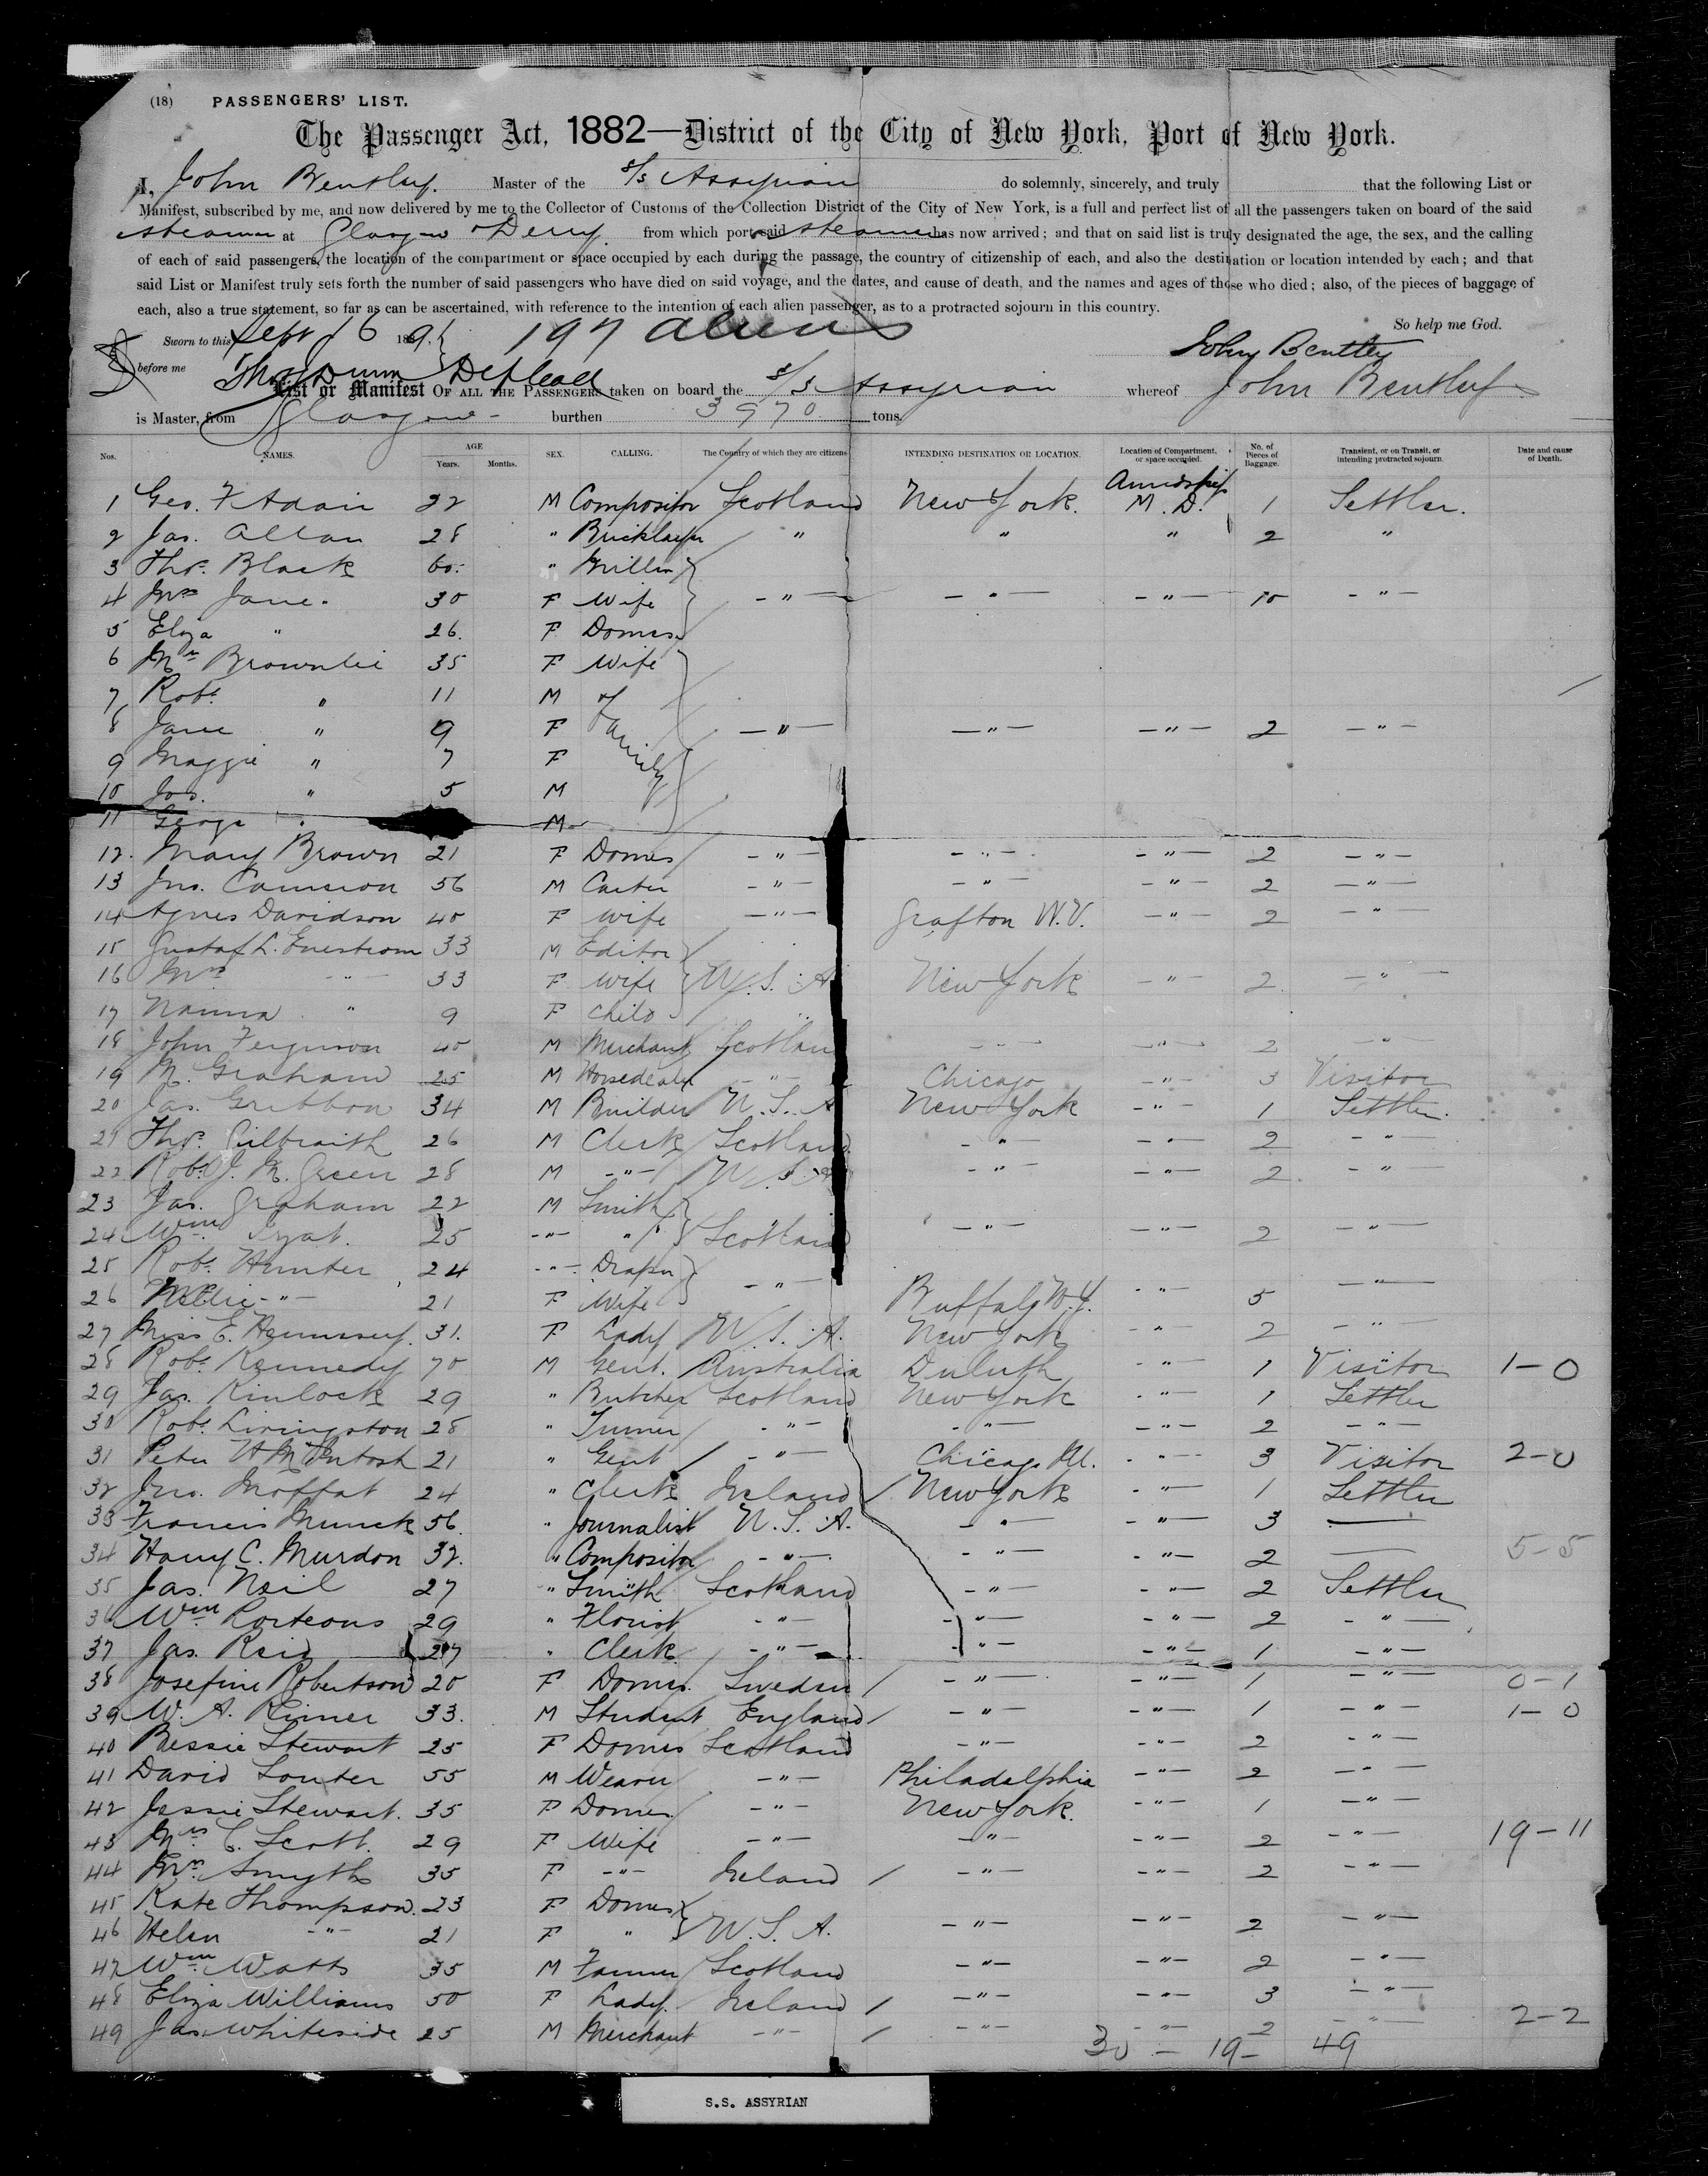 (18) PASSENGERS' LIST.
The Passenger Act, 1882—District of the City of New York, Port of New York.
I, John Bentley. Master of the s/s Assyrian do solemnly, sincerely, and truly that the following List or
Manifest, subscribed by me, and now delivered by me to the Collector of Customs of the Collection District of the City of New York, is a full and perfect list of all the passengers taken on board of the said
steamer at Glasgow & Derry. from which port said steamer has now arrived; and that on said list is truly designated the age, the sex, and the calling
of each of said passengers, the location of the compartment or space occupied by each during the passage, the country of citizenship of each, and also the destination or location intended by each; and that
said List or Manifest truly sets forth the number of said passengers who have died on said voyage, and the dates, and cause of death, and the names and ages of those who died; also, of the pieces of baggage of
each, also a true statement, so far as can be ascertained, with reference to the intention of each alien passenger, as to a protracted sojourn in this country.
So help me God.
Sworn to this Sept 16 1891. 197 aliens
John Bentley
before me Thos Dunn
List or Manifest OF ALL THE PASSENGERS taken on board the s/s Assyrian whereof John Bentley
is Master, from Glasgow - burthen 3970 tons.
Nos. NAMES. AGE Years. Months. SEX. CALLING. The Country of which they are citizens INTENDING DESTINATION OR LOCATION. Location of Compartment, or space occupied. No. of Pieces of Baggage. Transient, or on Transit, or intending protracted sojourn. Date and cause of Death.
Amidships
1 Geo. F Adair 22 M Compositor Scotland New York. M. D. 1 Settler.
2 Jas. Allan 28 " Bricklayer " " " 2 "
3 Thos. Black 60 "
4 Mrs Jane 30 F Wife - " - - " - - " - 10 - " -
5 Eliza " 26. F Domes.
6 Mrs Brownlie 35 F Wife
7 Robt. " 11 M of
8 Jane " 9 F Family - " - - " - - " - 2 - " -
9 Maggie " 7 F
10 Jas. " 5 M
11 George " M
12. Mary Brown 21 F Domes - " - - " - - " - 2 - " -
13 Jno. Cameron 56 M Carter - " - - " - - " - 2 - " -
14 Agnes Davidson 40 F Wife - " - Grafton W.V. - " - 2 - " -
15 Gustaf L. Enestrom 33 M Editor
16 Mrs - " - 33 F Wife U.S.A New York - " - 2 - " -
17 Nanna " 9 F Child
18 John Ferguson 40 M Merchant Scotland - " - - " - 2 - " -
19 M. Graham 25 M Horsedealer - " - Chicago - " - 3 Visitor
20 Jas. Gribbon 34 M Builder U.S.A New York - " - 1 Settler.
21 Thos. Gilbraith 26 M Clerk Scotland - " - - " - 2 - " -
22 Robt. J. M. Green 28 M - " - U.S.A - " - - " - 2 - " -
23 Jas. Graham 22 M Smith
24 Wm 25 - " - " Scotland - " - - " - 2 - " -
25 Robt. Hunter 24 - " - Draper
26 Nellie - " - 21 F Wife - " - Buffalo N.Y. - " - 5 - " -
27 Miss E. Hennessy. 31. F Lady U.S.A. New York - " - 2 - " -
28 Robt. Kennedy 70 M Gent. Australia Duluth - " - 1 Visitor 1-0
29 Jas. Kinlock 29 " Butcher Scotland New York - " - 1 Settler
30 Robt. Livingston 28 " Turner - " - - " - - " - 2 - " -
31 Peter H McIntosh 21 " Gent - " - Chicago Ill. - " - 3 Visitor 2-0
32 Jno. Moffat 24 " Clerk Ireland New York - " - 1 Settler
33 Francis Munck 56. " Journalist U.S.A. - " - - " - 3 —
34 Harry C. Murdon 32. " Compositor - " - - " - - " - 2 — 5-5
35 Jas. Neil 27 " Smith Scotland - " - - " - 2 Settler
36 Wm Porteous 29 " Florist - " - - " - - " - 2 - " -
37 Jas. Reid 27 " Clerk - " - - " - - " - 1 - " -
38 Josefine Robertson 20 F Domes. Sweden - " - - " - 1 - " - 0-1
39 W. A. Rimer 33. M Student England - " - - " - 1 - " - 1-0
40 Bessie Stewart 25 F Domes Scotland - " - - " - 2 - " -
41 David Souter 55 M Weaver - " - Philadelphia - " - 2 - " -
42 Jessie Stewart. 35 F Domes - " - New York. - " - 1 - " -
43 Mrs C. Scott. 29 F Wife - " - - " - - " - 2 - " - 19-11
44 Mrs Smyth 35 F - " - Ireland - " - - " - 2 - " -
45 Kate Thompson. 23 F Domes
46 Helen - " - 21 F " U.S.A. - " - - " - 2 - " -
47 Wm Watts 35 M Farmer Scotland - " - - " - 2 - " -
48 Eliza Williams 50 F Lady. Ireland - " - - " - 3 - " -
49 Jas. Whiteside 25 M Merchant - " - - " - - " - 2 - " - 2-2
30 - 19 - 49
S.S. ASSYRIAN